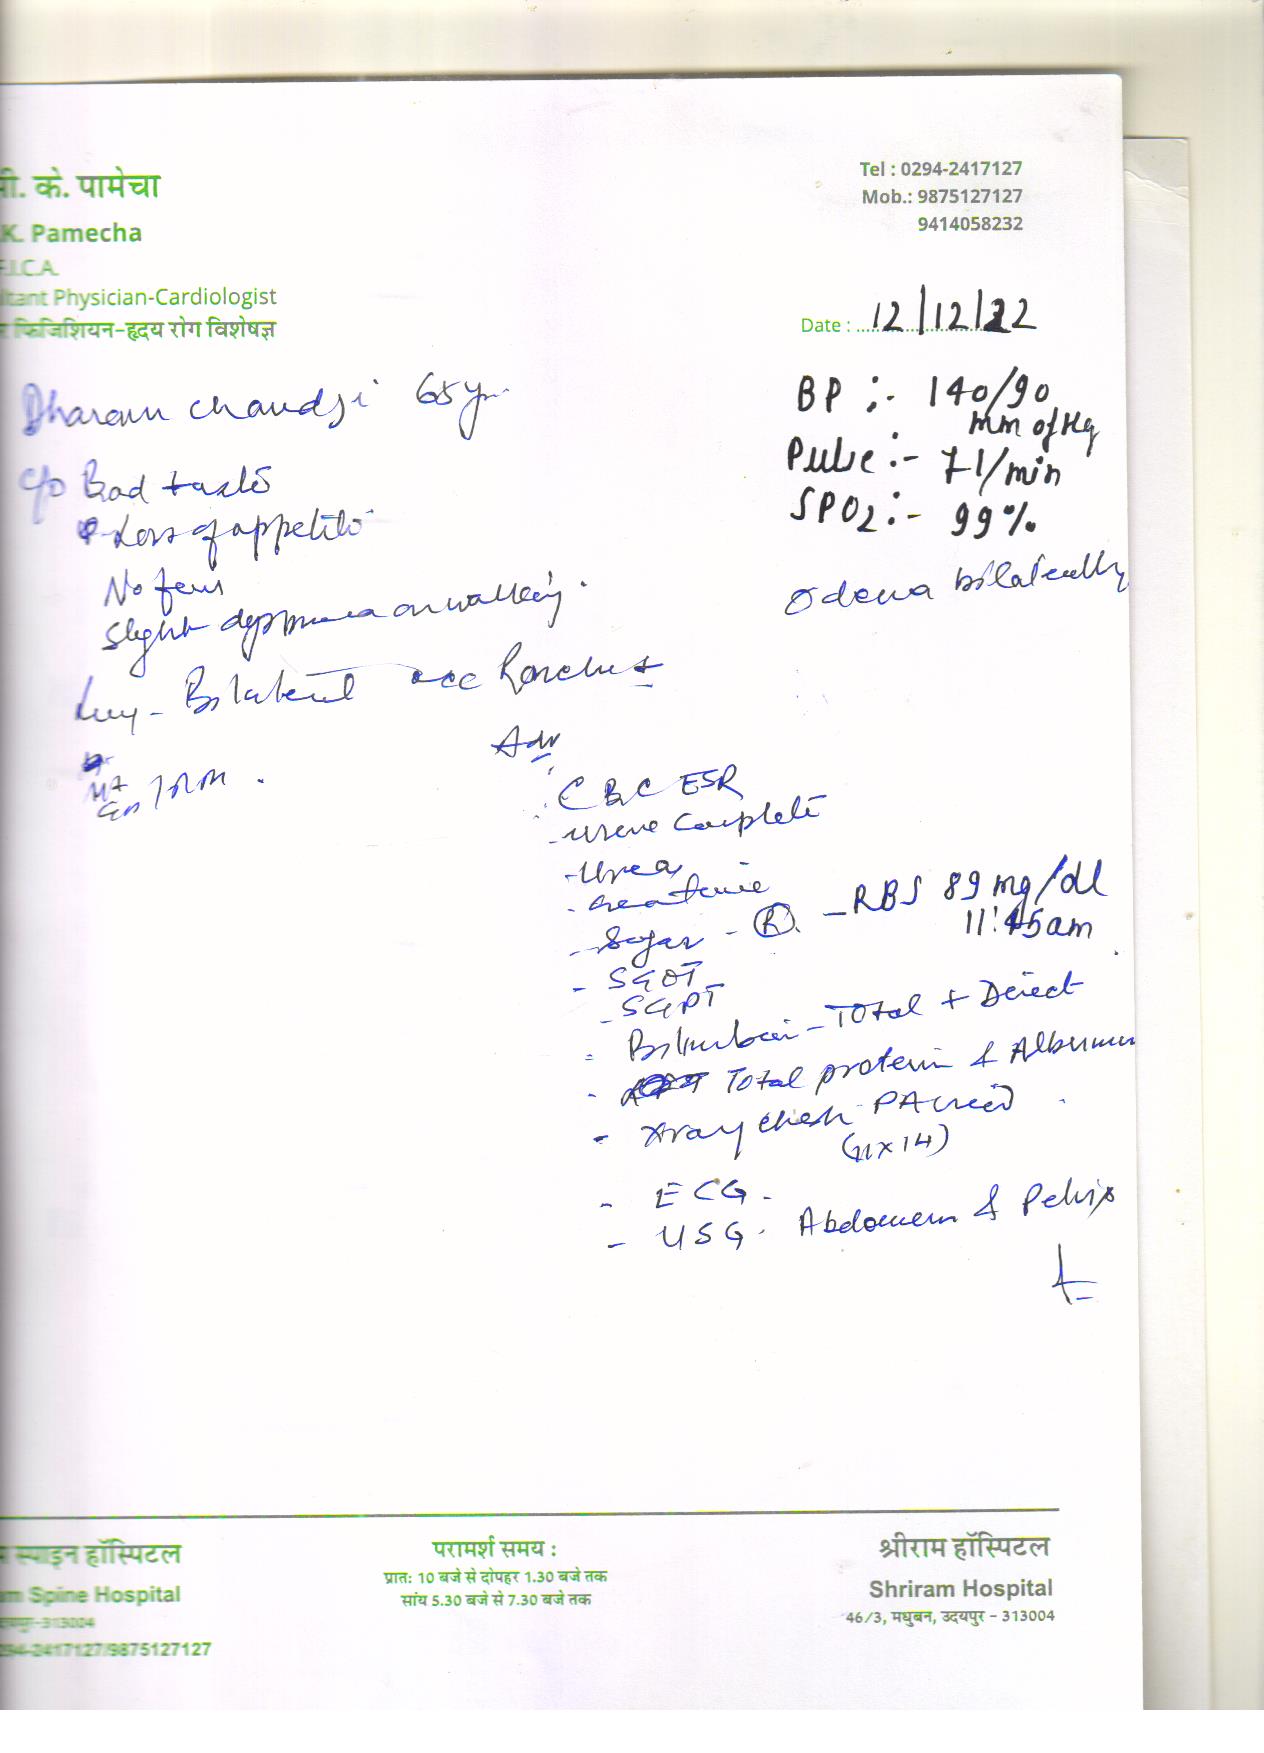 ी. के. पामेचा
.K. Pamecha
F.I.C.A.
ltant Physician-Cardiologist
फिजिशियन-हृदय रोग विशेषज्ञ
Tel : 0294-2417127
Mob.: 9875127127
9414058232
Date : 12/12/22
Dharam chandji 65yr
BP :- 140/90
mm of Hg
Pulse :- 71/min
SPO2 :- 99%
Odema bilaterally
c/o Bad taste
Loss of appetite
No fever
Slight dyspnoea on walking.
Lung - Bilateral occ Ronchi +
Adv
CBC ESR
- Urine Complete
- Urea
- Creatinine
- Sugar - (R). - RBS 89 mg/dl
11:45am
- SGOT
- SGPT
- Bilirubin - Total + Direct
- Total protein & Albumin
- Xray Chest PA view
(11 x 14)
- ECG -
- USG. Abdomen & Pelvis
स्पाइन हॉस्पिटल
am Spine Hospital
दयपुर-313004
294-2417127/9875127127
परामर्श समय :
प्रात: 10 बजे से दोपहर 1.30 बजे तक
सांय 5.30 बजे से 7.30 बजे तक
श्रीराम हॉस्पिटल
Shriram Hospital
46/3, मधुबन, उदयपुर - 313004